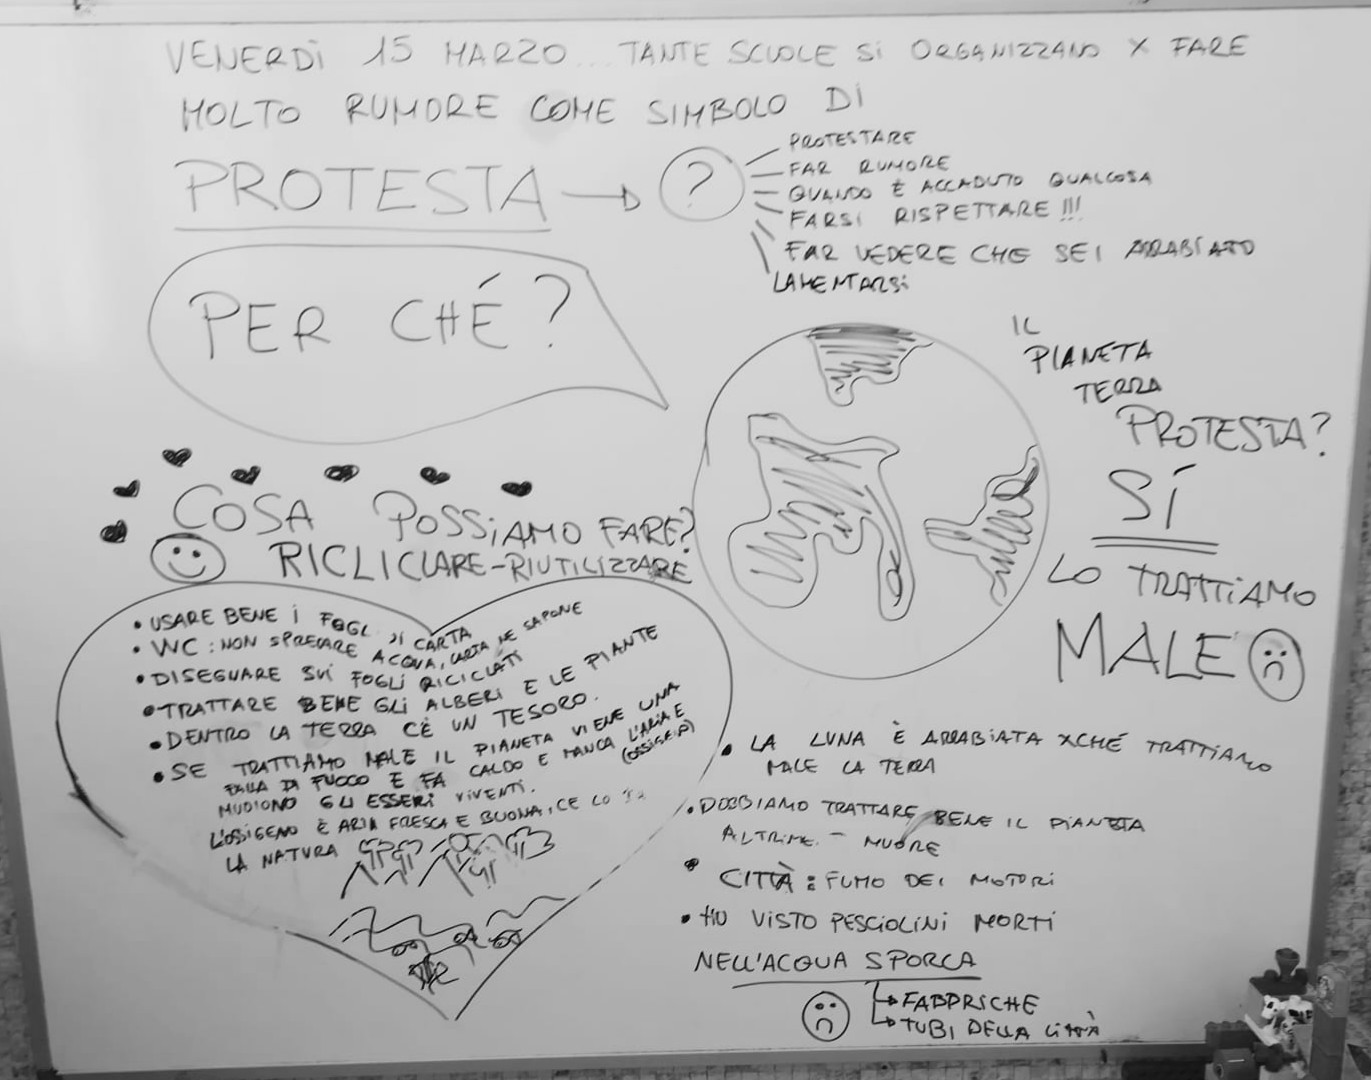 VENERDÌ 15 MARZO... TANTE SCUOLE SI ORGANIZZANO X FARE
MOLTO RUMORE COME SIMBOLO DI
PROTESTA → ?
PROTESTARE
FAR RUMORE
QUANDO È ACCADUTO QUALCOSA
FARSI RISPETTARE!!!
FAR VEDERE CHE SEI ARRABIATO
LAMENTARSI
PER CHÉ?
IL
PIANETA
TERRA
PROTESTA?
SÍ
LO TRATTIAMO
MALE
COSA POSSIAMO FARE?
RICLICLARE-RIUTILIZZARE
• USARE BENE I FOGL DI CARTA
• WC: NON SPRECARE ACQUA, CARTA NE SAPONE
• DISEGNARE SUI FOGLI RICICLATI
• TRATTARE BENE GLI ALBERI E LE PIANTE
• DENTRO LA TERRA C'È UN TESORO.
• SE TRATTIAMO MALE IL PIANETA VIENE UNA
PALLA DI FUOCO E FA CALDO E MANCA L'ARIA E
(OSSIGENO)
MUOIONO GLI ESSERI VIVENTI.
L'OSSIGENO È ARIA FRESCA E BUONA, CE LO
LA NATURA
• LA LUNA È ARRABIATA XCHÉ TRATTIAMO
MALE LA TERRA
• DOBBIAMO TRATTARE BENE IL PIANETA
ALTRIME. - MUORE
• CITTÀ: FUMO DEI MOTORI
• HO VISTO PESCIOLINI MORTI
NELL'ACQUA SPORCA
→ FABBRICHE
→ TUBI DELLA CITTÀ